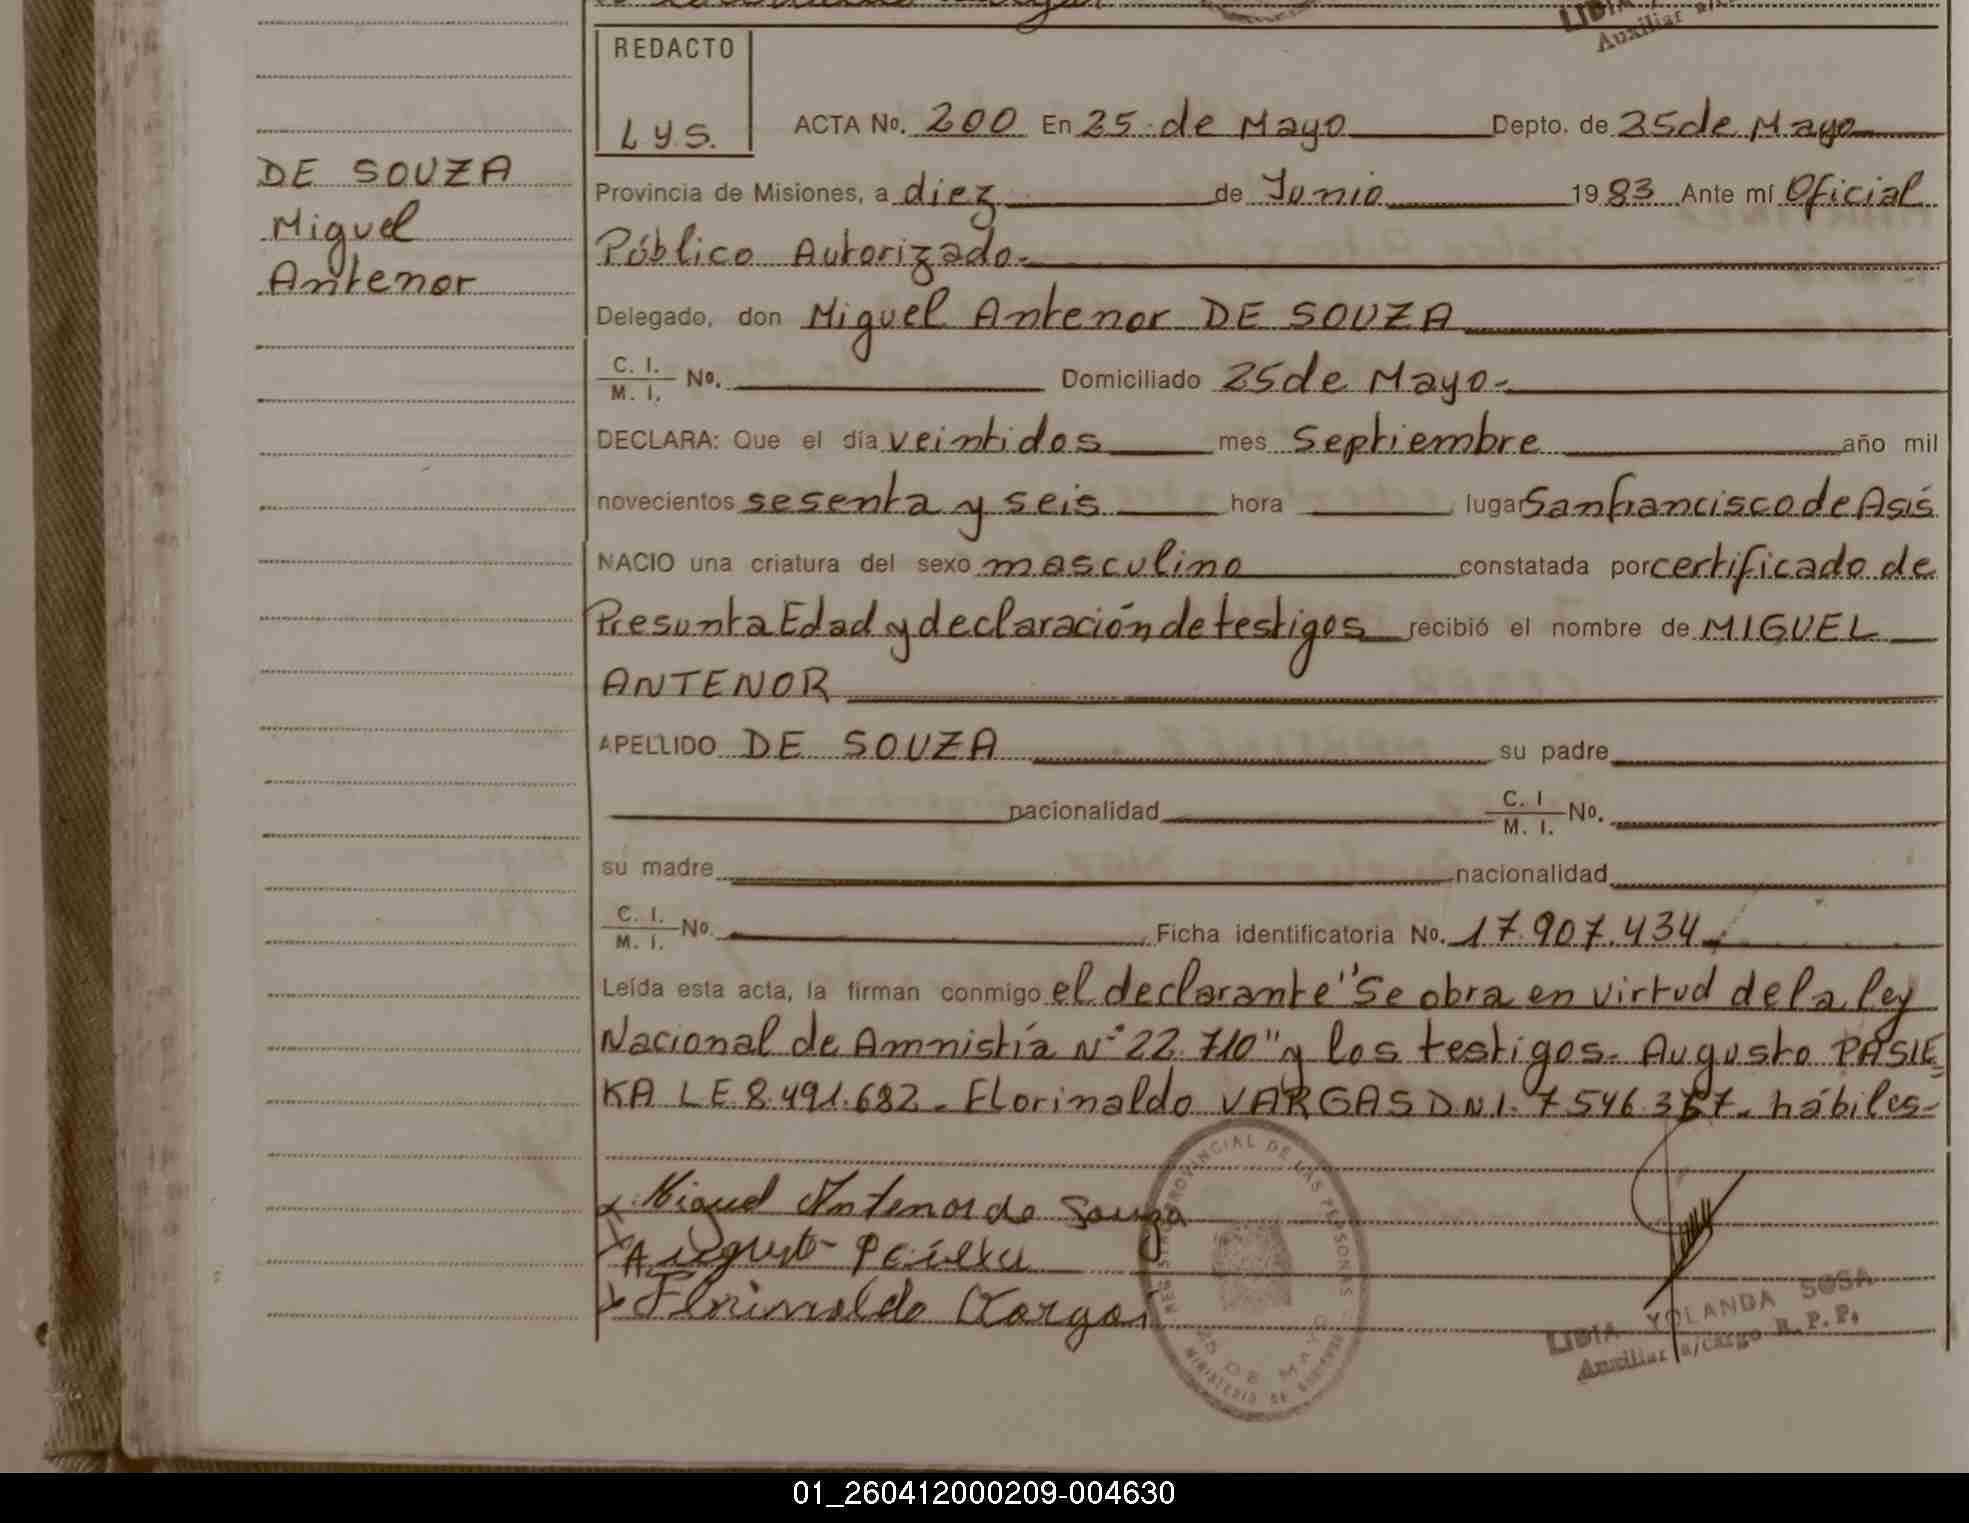 REDACTO
L Y S.
ACTA No. 200 En 25 de Mayo Depto. de 25 de Mayo
DE SOUZA
Miguel
Antenor
Provincia de Misiones, a diez de Junio 1983 Ante mí Oficial
Público Autorizado.-
Delegado, don Miguel Antenor DE SOUZA
C. I. M. I. No. Domiciliado 25 de Mayo.-
DECLARA: Que el día veintidos mes Septiembre año mil
novecientos sesenta y seis hora lugar San francisco de Asís
NACIO una criatura del sexo masculino constatada por certificado de
Presunta Edad y declaración de testigos recibió el nombre de MIGUEL
ANTENOR
APELLIDO DE SOUZA su padre
nacionalidad C. I M. I. No.
su madre nacionalidad
C. I. M. I. No. Ficha identificatoria No. 17.907.434.-
Leída esta acta, la firman conmigo el declarante "Se obra en virtud de la ley
Nacional de Amnistía N° 22.710" y los testigos. Augusto PASIE
KA LE 8.491.682. Florinaldo VARGAS D.N.I. 7546.367. hábiles-
Miguel Antenor de Souza
Augusto
Florinaldo Vargas
REGISTRO PROVINCIAL DE LAS PERSONAS
25 DE MAYO
MINISTERIO DE GOBIERNO
LIDIA YOLANDA SOSA
Auxiliar a/cargo R. P. P.
LIDIA
Auxiliar
01_260412000209-004630